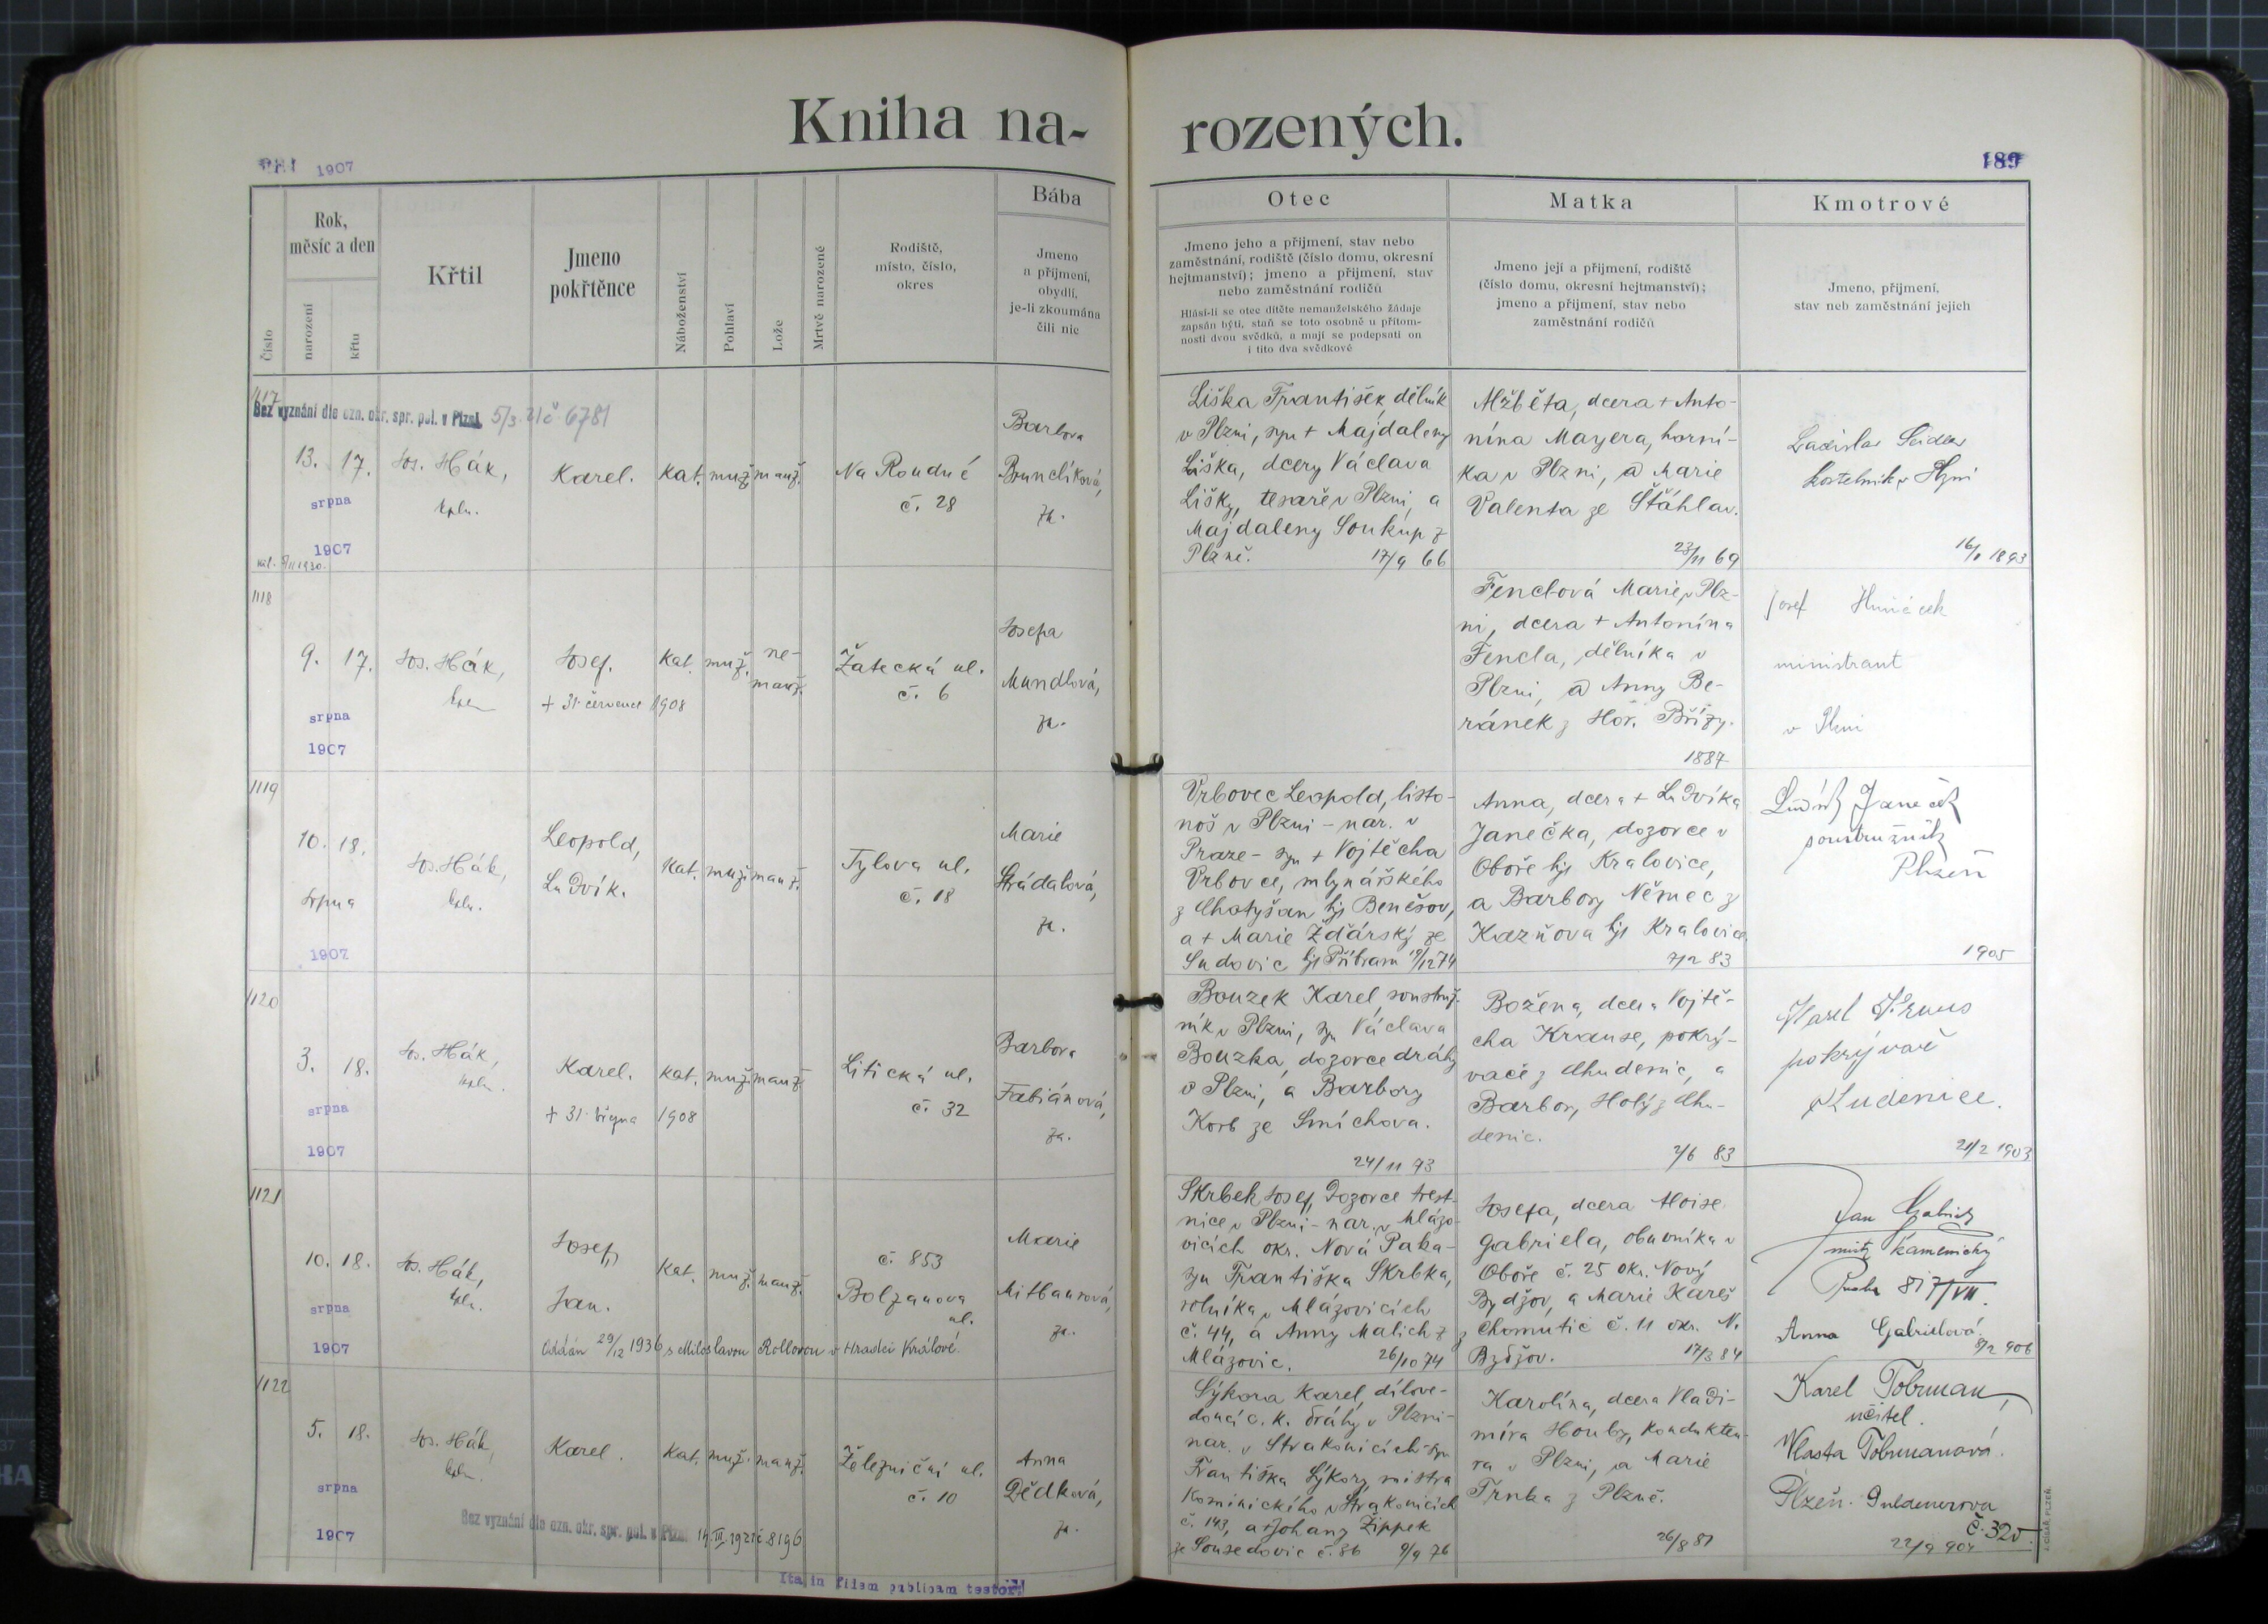 Kniha na-
rozených.
1907
189
Číslo
Rok,
měsíc a den
narození
křtu
Křtil
Jmeno
pokřtěnce
Náboženství
Pohlaví
Lože
Mrtvě narozené
Rodiště,
místo, číslo,
okres
Bába
Jmeno
a příjmení,
obydlí,
je-li zkoumána
čili nic
Otec
Jmeno jeho a přijmení, stav nebo
zaměstnání, rodiště (číslo domu, okresní
hejtmanství); jmeno a přijmení, stav
nebo zaměstnání rodičů
Hlásí-li se otec dítěte nemanželského žádaje
zapsán býti, staň se toto osobně u přítom-
nosti dvou svědků, a mají se podepsati on
i tito dva svědkové
Matka
Jmeno její a přijmení, rodiště
(číslo domu, okresní hejtmanství);
jmeno a přijmení, stav nebo
zaměstnání rodičů
Kmotrové
Jmeno, přijmení,
stav neb zaměstnání jejich
1117
Bez vyznání dle ozn. okr. spr. pol. v Plzni 5/3 21 č 6781
13. 17.
srpna
1907
Jos. Hák,
kpln.
Karel.
kat. muž. manž.
Na Roudné
č. 28
Barbora
Brunclíková,
zk.
Liška František dělník
v Plzni, syn + Majdaleny
Liška, dcery Václava
Lišky, tesaře v Plzni, a
Majdaleny Soukup z
Plzně. 17/9 66
Alžběta, dcera + Anto-
nína Mayera, horní-
ka v Plzni, a Marie
Valenta ze Štáhlav.
23/11 69
Ladislav
kostelník v Plzni
1893
1118
9. 17.
srpna
1907
Jos. Hák,
kpln
Josef.
+ 31. července 1908
kat. muž. ne-
manž.
Žatecká ul.
č. 6
Josefa
Mundlová,
zk.
Fenclová Marie v Plz-
ni, dcera + Antonína
Fencla, dělníka v
Plzni, a Anny Be-
ránek z Hor. Břízy.
1887
Josef
ministrant
v Plzni
1119
10. 18.
srpna
1907
Jos. Hák,
kpln.
Leopold,
Ludvík.
kat. muž. manž.
Tylova ul.
č. 18
Marie
Strádalová,
zk.
Vrbovec Leopold, listo-
noš v Plzni - nar. v
Praze - syn + Vojtěcha
Vrbovce, mlynářského
z Chotyšan hjt Benešov,
a + Marie Žďárský ze
Sudovic hjt Příbram 19/12 74
Anna, dcera + Ludvíka
Janečka, dozorce v
Oboře hjt Kralovice,
a Barbory Němec z
Kazňova hjt Kralovice.
7/2 83
Ludvík Janeček
soustružník
Plzeň
1905
1120
3. 18.
srpna
1907
Jos. Hák,
kpln.
Karel.
+ 31. března 1908
kat. muž. manž.
Litická ul.
č. 32
Barbora
Fabiánová,
zk.
Bouzek Karel, soustruž-
ník v Plzni, syn Václava
Bouzka, dozorce dráhy
v Plzni, a Barbory
Korb ze Smíchova.
24/11 93
Božena, dcera Vojtě-
cha Krause, pokrý-
vače z Chudenic, a
Barbory Holý z Chu-
denic.
2/6 83
Karel Kraus
pokrývač
Chudenice.
21/2 1903
1121
10. 18.
srpna
1907
Jos. Hák,
kpln.
Josef,
Jan.
Oddán 29/12 1936 s Miloslavou Rollovou v Hradci Králové.
kat. muž. manž.
č. 853
Bolzanova
ul.
Marie
Mitbaurová,
zk.
Skrbek Josef, dozorce trest-
nice v Plzni - nar. v Mlázo-
vicích okr. Nová Paka -
syn Františka Skrbka,
rolníka v Mlázovicích
č. 44, a Anny Malich z
Mlázovic. 26/10 74
Josefa, dcera Aloise
Gabriela, obuvníka v
Oboře č. 25 okr. Nový
Bydžov, a Marie Kareš
z Chomutic č. 11 okr. N.
Bydžov. 17/3 84
Jan Gabriel
mistr kamenický
Praha 817/VII.
Anna Gabrielová
8/2 906
1122
5. 18.
srpna
1907
Jos. Hák,
kpln.
Karel.
kat. muž. manž.
Železniční ul.
č. 10
Anna
Dědková,
zk.
Bez vyznání dle ozn. okr. spr. pol. v Plzni 14. III. 1921 č 8196
Sýkora Karel, dílove-
doucí c. k. dráhy v Plzni -
nar. v Strakonicích - syn
Františka Sýkory, mistra
kominického v Strakonicích
č. 143, a Johany Žippek
ze Sousedovic č. 86 9/9 76
Karolína, dcera Vladi-
míra Houby, kondukteu-
ra v Plzni, a Marie
Trnka z Plzně.
26/8 81
Karel Tobrman,
učitel.
Vlasta Tobrmanová.
Plzeň. Guldenerova
č. 320.
22/9 904
Ita in fidem publicam testor:
J. CÍSAŘ, PLZEŇ.